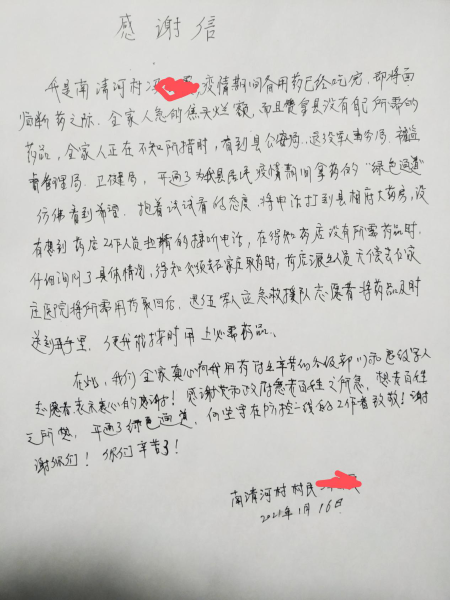 感谢信
我是南清河村 疫情期间备用药已经吃完,即将面
临断药之际,全家人急的焦头烂额,而且赞皇县没有我所需的
药品,全家人正在不知所措时,看到县公安局、退役军人事务局、
管理局、卫健局,开通了为我县居民疫情期间拿药的“绿色通道”
仿佛看到希望,抱着试试看的态度,将电话打到县相府大药房,没
有想到药店工作人员 的接听电话,在得知药店没有所需药品时,
仔细询问了具体情况,得知必须去石家庄取药时,药店派人员 去石家
庄医院将所需用药取回后,退伍军人应急救援队志愿者将药品及时
送到 里,使我能按时用上必需药品。
在此,我们全家真心向我用药付出辛劳的各级部门 退役军人
志愿者表示衷心的感谢!感谢党和政府急老百姓之所急,想老百姓
之所想,开通了绿色通道,向坚守在防控一线的工作者致敬!谢
谢你们!你们辛苦了!
南清河村 村民
2021年1月16日